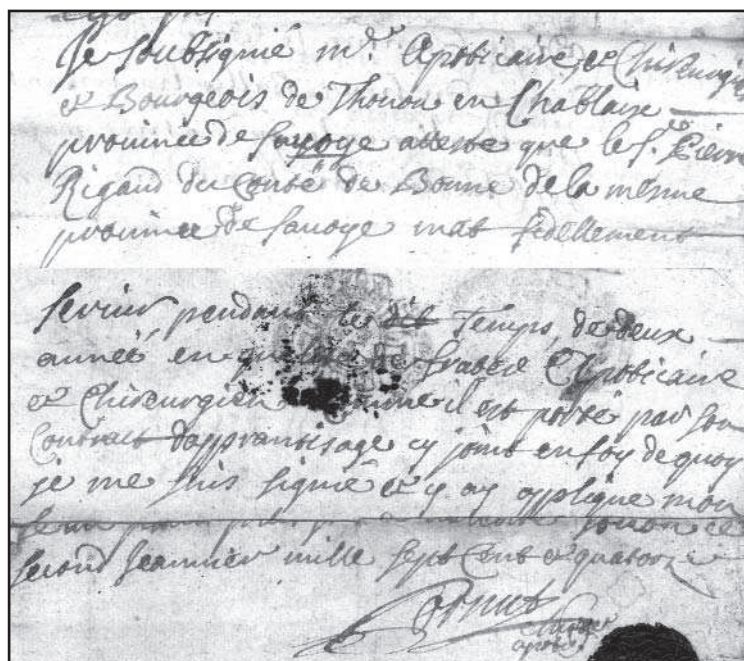 Je soubsignié m.^e Apoticaire, et Chirurgien
et Bourgeois de Thonon en Chablaix
province de savoye atteste que le s.^r Pierre
Rigaud du Conté de Bonne de la mesme
province de savoye mat fidellement
servir pendant le dit Temps, de deux
anneé en qualité de frater Apoticaire
et Chirurgien Comme il est porté par son
Contract dapprantisage cy joint en foy de quoy
je me suis signié et y ay appliqué mon
second Jeanvier mille sept Cent et quatorze
Cornut